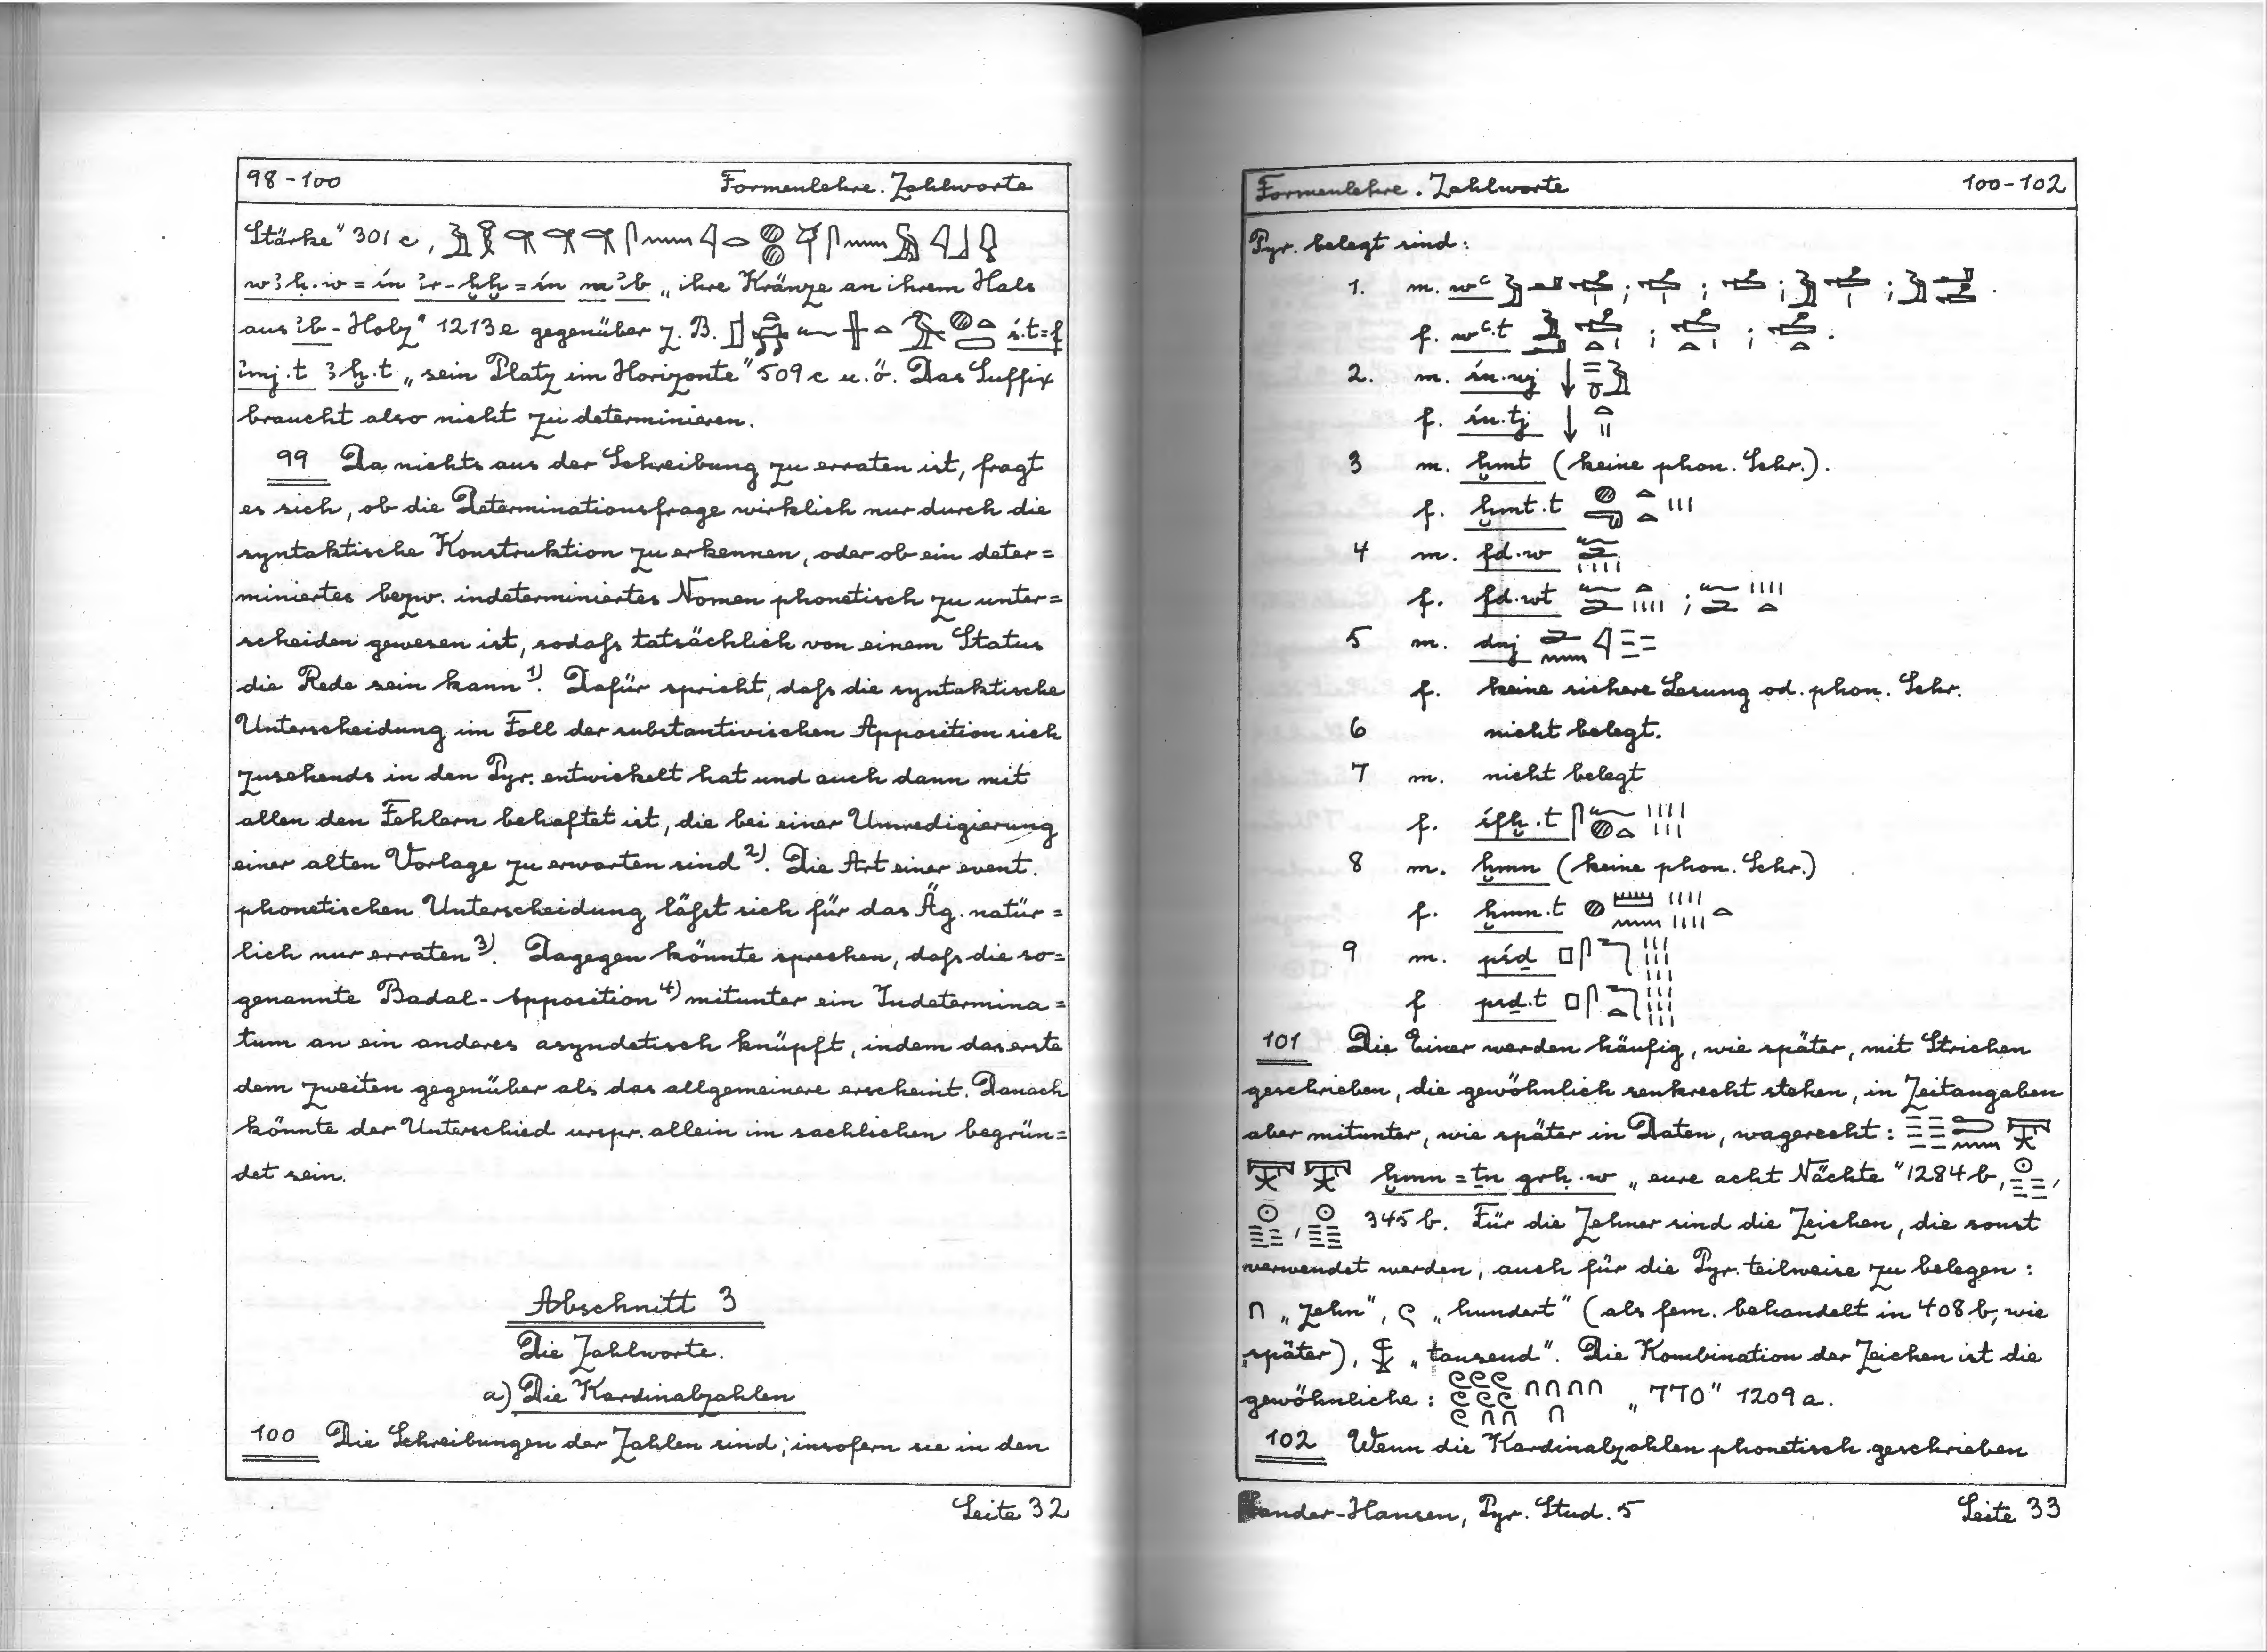 98-100 Formenlehre. Zahlworte
Stärke" 301 c,
wꜣḥ.w=śn ꞽr-ḫḫ=śn m ꜥb „ihre Kränze an ihrem Hals
aus ꞽb-Holz" 1213e gegenüber z. B. ś.t=f
ꞽmj.t ꜣḫ.t „sein Platz im Horizonte" 509c u. ö. Das Suffix
braucht also nicht zu determinieren.
99 Da nichts aus der Schreibung zu erraten ist, fragt
es sich, ob die Determinationsfrage wirklich nur durch die
syntaktische Konstruktion zu erkennen, oder ob ein deter=
miniertes bezw. indeterminiertes Nomen phonetisch zu unter=
scheiden gewesen ist, sodaß tatsächlich von einem Status
die Rede sein kann 1). Dafür spricht, daß die syntaktische
Unterscheidung im Fall der substantivischen Apposition sich
zusehends in den Pyr. entwickelt hat und auch dann mit
allen den Fehlern behaftet ist, die bei einer Umredigierung
einer alten Vorlage zu erwarten sind 2). Die Art einer event.
phonetischen Unterscheidung läßt sich für das Äg. natür=
lich nur erraten 3). Dagegen könnte sprechen, daß die so=
genannte Badal-Apposition 4) mitunter ein Indetermina=
tum an ein anderes asyndetisch knüpft, indem das erste
dem zweiten gegenüber als das allgemeinere erscheint. Danach
könnte der Unterschied urspr. allein im sachlichen begrün=
det sein.
Abschnitt 3
Die Zahlworte.
a) Die Kardinalzahlen
100 Die Schreibungen der Zahlen sind, insofern sie in den
Seite 32
Formenlehre. Zahlworte 100-102
Pyr. belegt sind:
1. m. wꜥ ; ; ; ; .
f. wꜥ.t ; ; .
2. m. śn.wj
f. śn.tj
3 m. ḫmt (keine phon. Schr.).
f. ḫmt.t
4 m. fd.w
f. fd.wt ;
5 m. dnj
f. keine sichere Lesung od. phon. Schr.
6 nicht belegt.
7 m. nicht belegt
f. śfḫ.t
8 m. ḫmn (keine phon. Schr.)
f. ḫmn.t
9 m. pśḏ
f psḏ.t
101 Die Einer werden häufig, wie später, mit Strichen
geschrieben, die gewöhnlich senkrecht stehen, in Zeitangaben
aber mitunter, wie später in Daten, wagerecht:
ḫmn=ṯn grḥ.w „eure acht Nächte" 1284b, ,
, 345b. Für die Zehner sind die Zeichen, die sonst
verwendet werden, auch für die Pyr. teilweise zu belegen:
∩ „zehn", „hundert" (als fem. behandelt in 408b, wie
später), „tausend". Die Kombination der Zeichen ist die
gewöhnliche: „770" 1209a.
102 Wenn die Kardinalzahlen phonetisch geschrieben
Sander-Hansen, Pyr. Stud. 5 Seite 33